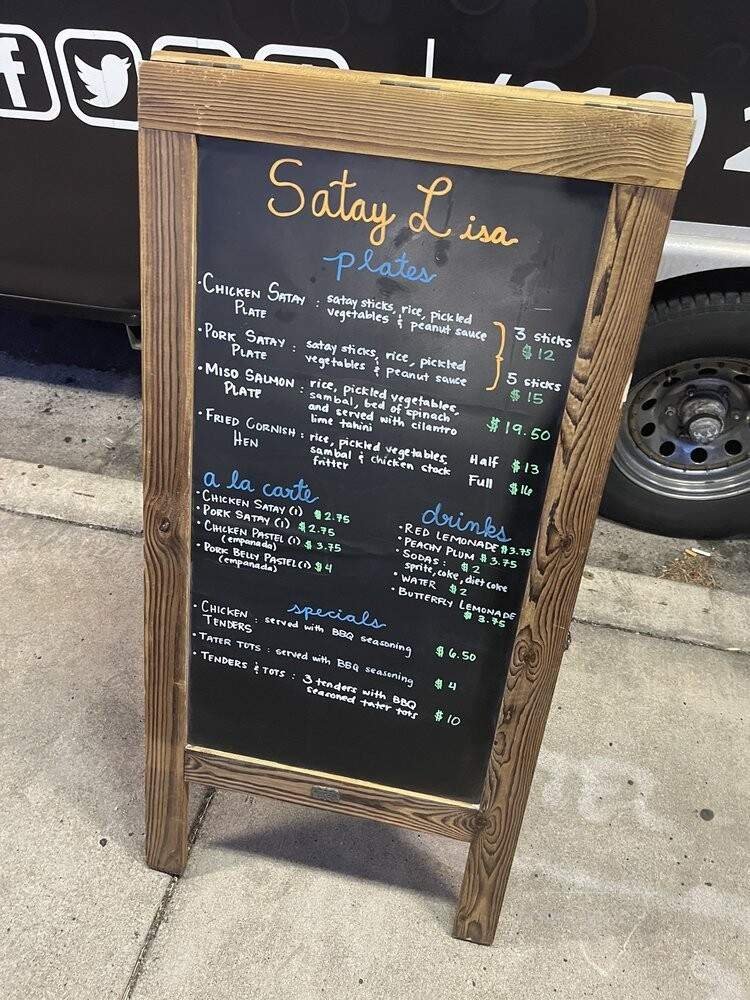 f
Satay Lisa
plates
· CHICKEN SATAY : satay sticks, rice, pickled
PLATE vegetables & peanut sauce
3 sticks
$12
· PORK SATAY : satay sticks, rice, pickled
PLATE vegetables & peanut sauce
5 sticks
$15
· MISO SALMON : rice, pickled vegetables,
PLATE sambal, bed of spinach
and served with cilantro
lime tahini
$19.50
· FRIED CORNISH : rice, pickled vegetables,
HEN sambal & chicken stock
fritter
Half $13
Full $16
a la carte
· CHICKEN SATAY (1) $2.75
· PORK SATAY (1) $2.75
· CHICKEN PASTEL (1) $3.75
(empanada)
· PORK BELLY PASTEL (1) $4
(empanada)
drinks
· RED LEMONADE $3.75
· PEACH PLUM $3.75
· SODAS : $2
sprite, coke, diet coke
· WATER $2
· BUTTERFLY LEMONADE
$3.75
specials
· CHICKEN : served with BBQ seasoning
TENDERS
$6.50
· TATER TOTS : served with BBQ seasoning
$4
· TENDERS & TOTS : 3 tenders with BBQ
seasoned tater tots
$10